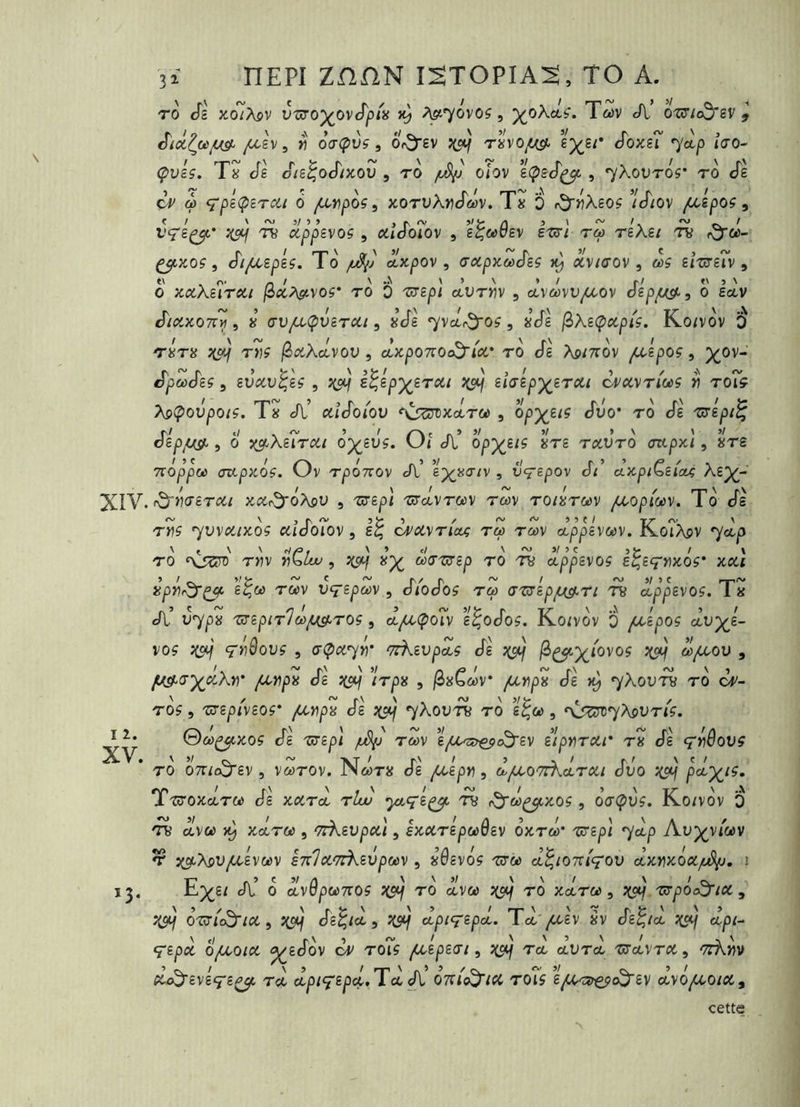 32 ΠΕΡΙ ΖΩΩΝ ΙΣΤΟΡΙΑΣ, ΤΟ Α.
τὸ δὲ κοῖλον ὑποχονδρίȣ καὶ λαγόνος, χολάς. Τῶν δ' ὄπισθεν,
διάζωμα μὲν, ἡ ὀσφὺς, ὅθεν καὶ τȣ̓νομα ἔχει· δοκεῖ γὰρ ἰσο-
φυές. Τȣ͂ δὲ διεξοδικοῦ, τὸ μὲν οἷον ἐφέδρα, γλουτός· τὸ δὲ
ἐν ᾧ στρέφεται ὁ μηρὸς, κοτυληδών. Τȣ͂ δὲ θήλεος ἴδιον μέρος,
ὑστέρα· καὶ τȣ͂ ἄῤῥενος, αἰδοῖον, ἔξωθεν ἐπὶ τῷ τέλει τȣ͂ θώ-
ρακος, διμερές. Τὸ μὲν ἄκρον, σαρκῶδες καὶ ἄνισον, ὡς εἰπεῖν,
ὃ καλεῖται βάλανος· τὸ δὲ περὶ αὐτὴν, ἀνώνυμον δέρμα, ὃ ἐὰν
διακοπῇ, ȣ̓ συμφύεται, ȣ̓δὲ γνάθος, ȣ̓δὲ βλεφαρίς. Κοινὸν δὲ
τȣ́τȣ καὶ τῆς βαλάνου, ἀκροποσθία· τὸ δὲ λοιπὸν μέρος, χον-
δρῶδες, εὐαυξὲς, καὶ ἐξέρχεται καὶ εἰσέρχεται ἐναντίως ἢ τοῖς
λοφούροις. Τȣ͂ δ' αἰδοίου ὑποκάτω, ὄρχεις δύο· τὸ δὲ πέριξ
δέρμα, ὃ καλεῖται ὄχευς. Οἱ δ' ὄρχεις ȣ̓́τε ταὐτὸ σαρκὶ, ȣ̓́τε
πόῤῥω σαρκός. Ὃν τρόπον δ' ἔχȣσιν, ὕστερον δι' ἀκριβείας λεχ-
XIV. θήσεται καθόλου, περὶ πάντων τῶν τοιȣ́των μορίων. Τὸ δὲ
τῆς γυναικὸς αἰδοῖον, ἐξ ἐναντίας τῷ τῶν ἀῤῥένων. Κοῖλον γὰρ
τὸ ὑπὸ τὴν ἥβην, καὶ ȣ̓χ ὥσπερ τὸ τȣ͂ ἄῤῥενος ἐξεστηκός· καὶ
ȣ̓ρήθρα ἔξω τῶν ὑστερῶν, δίοδος τῷ σπέρματι τȣ͂ ἄῤῥενος. Τȣ͂
δ' ὑγρȣ͂ περιττώματος, ἀμφοῖν ἔξοδος. Κοινὸν δὲ μέρος αὐχέ-
νος καὶ στήθους, σφαγή· πλευρᾶς δὲ καὶ βραχίονος καὶ ὤμου,
μασχάλη· μηρȣ͂ δὲ καὶ ἤτρȣ, βȣβών· μηρȣ͂ δὲ καὶ γλουτȣ͂ τὸ ἐν-
τὸς, περίνεος· μηρȣ͂ δὲ καὶ γλουτȣ͂ τὸ ἔξω, ὑπογλουτίς.
12.
XV. Θώρακος δὲ περὶ μὲν τῶν ἔμπροσθεν εἴρηται· τȣ͂ δὲ στήθους
τὸ ὄπισθεν, νῶτον. Νώτȣ δὲ μέρη, ὠμοπλάται δύο καὶ ῥάχις.
Ὑποκάτω δὲ κατὰ τὴν γαστέρα τȣ͂ θώρακος, ὀσφύς. Κοινὸν δὲ
τȣ͂ ἄνω καὶ κάτω, πλευραὶ, ἑκατέρωθεν ὀκτώ· περὶ γὰρ Λιγύων
τῶν καλουμένων ἑπταπλεύρων, ȣ̓θενός πω ἀξιοπίστου ἀκηκόαμεν.
13. Ἔχει δ' ὁ ἄνθρωπος καὶ τὸ ἄνω καὶ τὸ κάτω, καὶ πρόσθια,
καὶ ὀπίσθια, καὶ δεξιὰ, καὶ ἀριστερά. Τὰ μὲν ȣ̓͂ν δεξιὰ καὶ ἀρι-
στερὰ ὅμοια σχεδὸν ἐν τοῖς μέρεσι, καὶ τὰ αὐτὰ πάντα, πλὴν
ἀσθενέστερα τὰ ἀριστερά. Τὰ δ' ὀπίσθια τοῖς ἔμπροσθεν ἀνόμοια,
cette